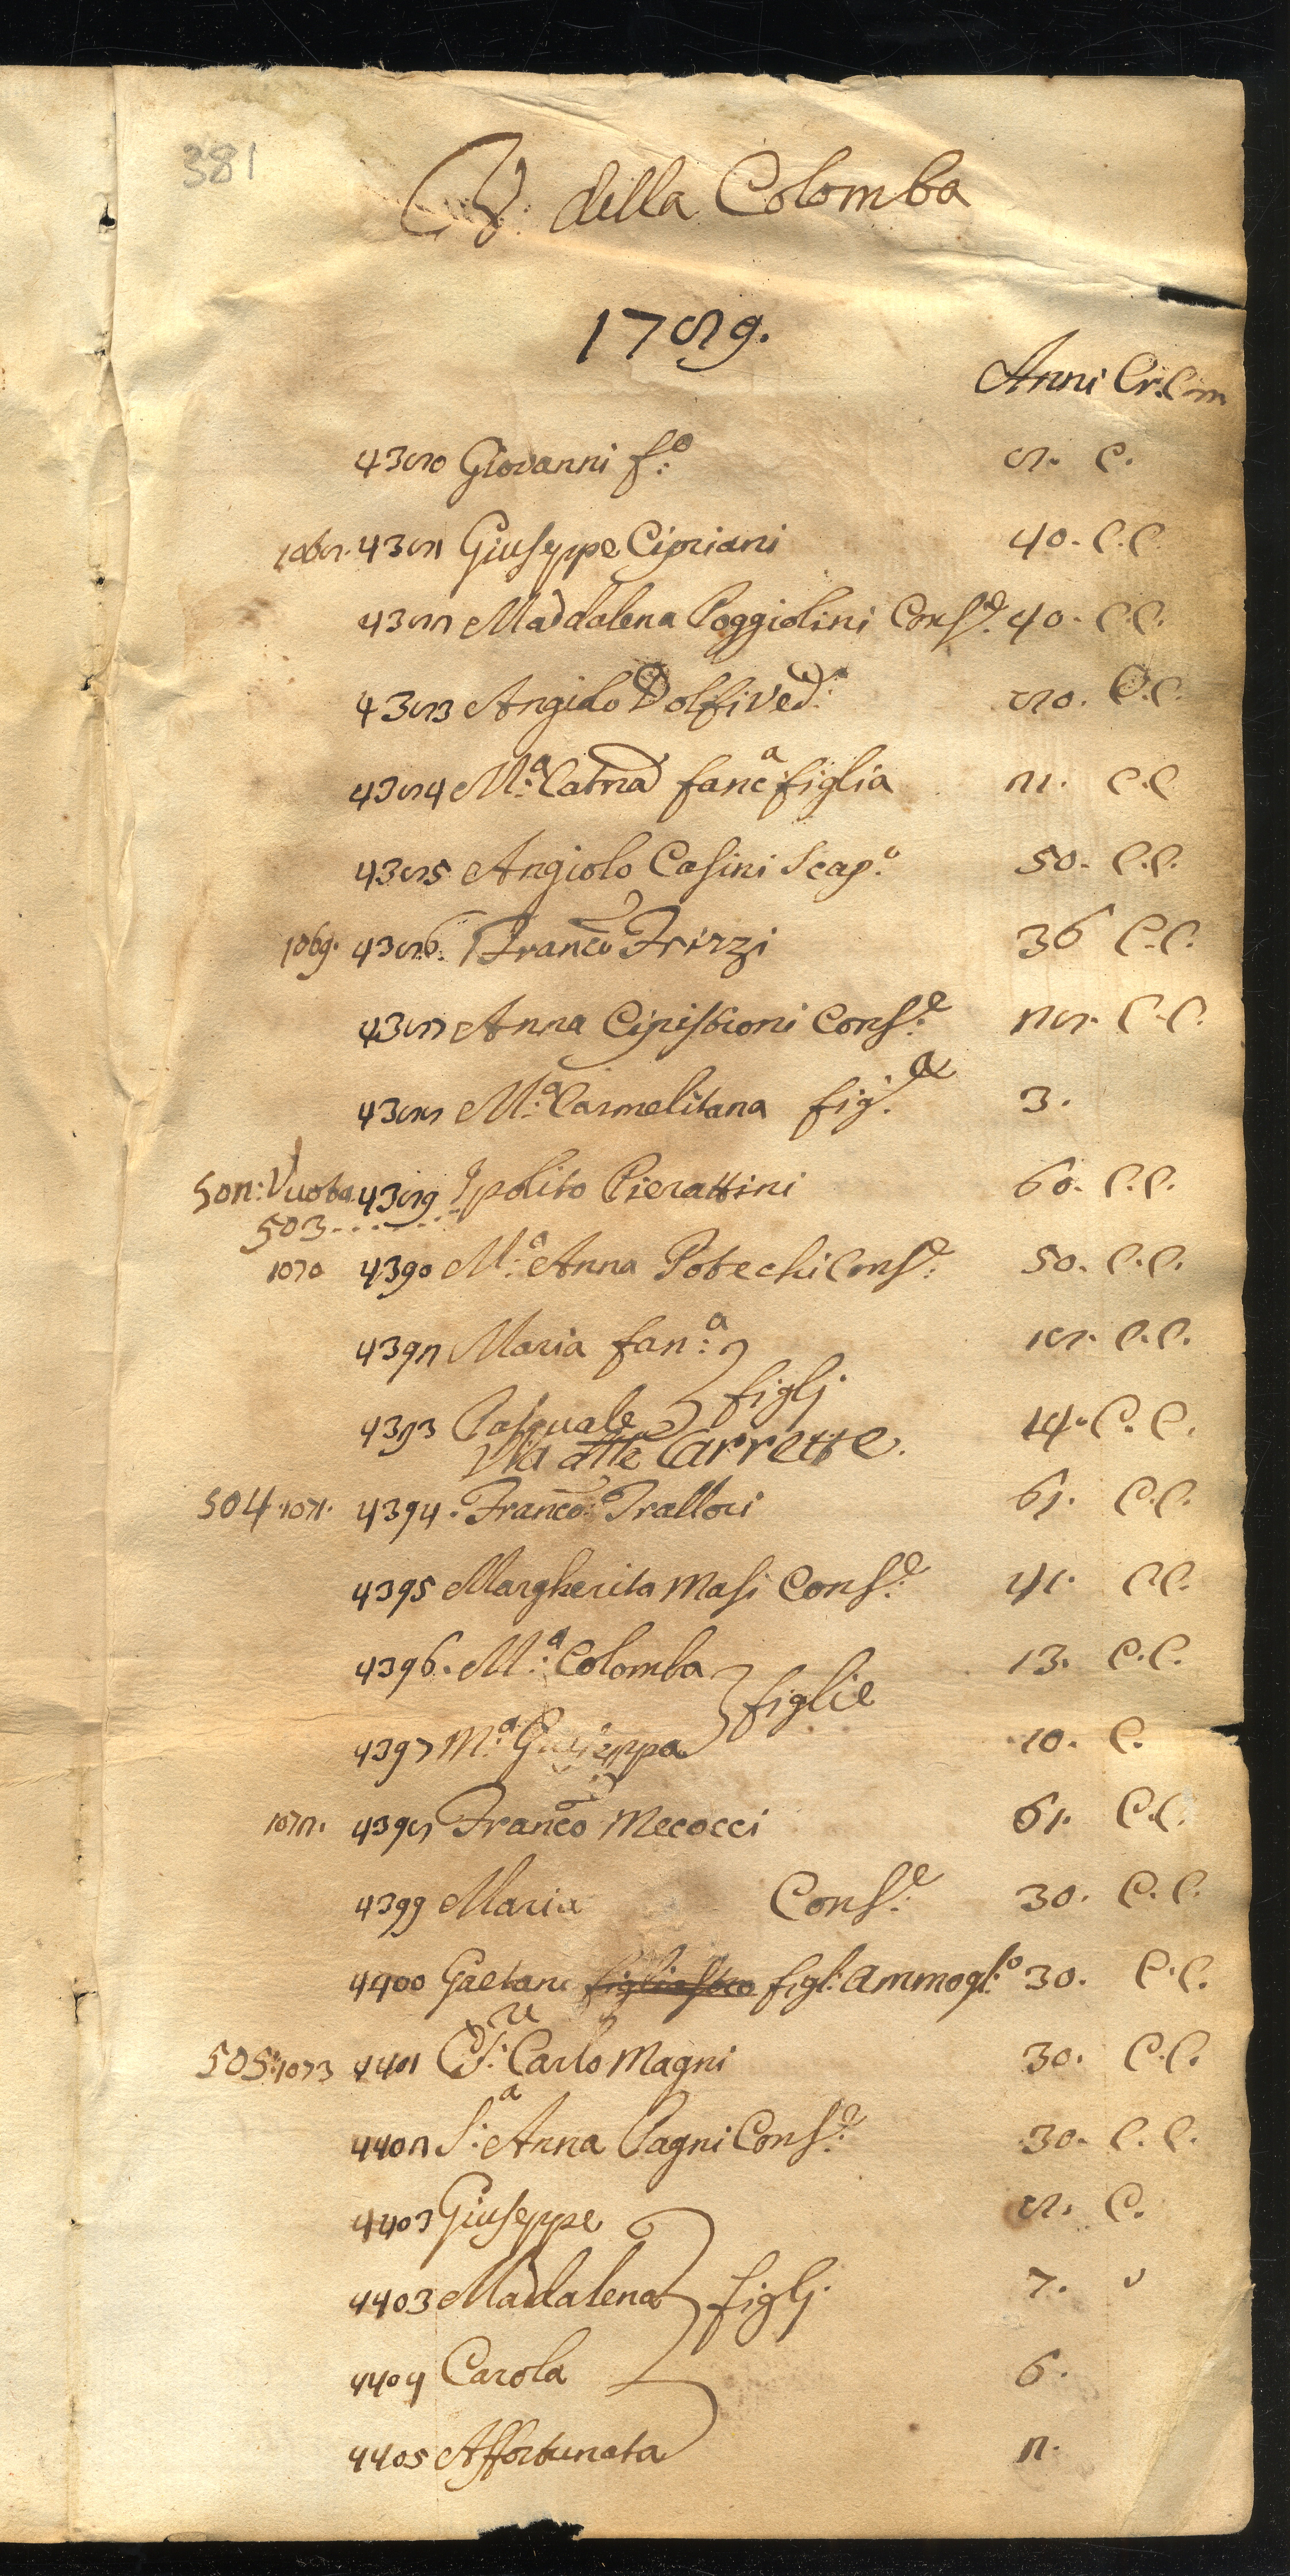 381
V. della Colomba
1789.
Anni Cr. Com
4380 Giovanni f.o 8. C.
1068. 4381 Giuseppe Cipriani 40. C.C.
4382 Maddalena Poggiolini Cons.e 40. C.C.
4383 Angiolo Dolfi Ved.o 80. C.C.
4384 M.a Catna fanc.a figlia 21. C.C
4385 Angiolo Casini Scap.o 50. C.C.
1069. 4386. Franco Frizzi 36 C.C.
4387 Anna Cipistioni Cons.e 28. C.C.
4388 M.a Carmelitana fig.a 3.
502: Vuota 4389 Ipolito Pierattini 60. C.C.
503
1070 4390 M.a Anna Potechi Cons.e 50. C.C.
4392 Maria fan.a 18. C.C.
figlj
4393 Pasquale 14. C.C.
Via dlle Carrette.
504 1071. 4394. Franco Trallori 61. C.C.
4395 Margherita Masi Cons.e 41. C.C.
4396. M.a Colomba 13. C.C.
figlie
4397 M.a Giuseppa 10. C.
1072. 4398 Franco Mecocci 61. C.C.
4399 Maria Cons.e 30. C.C.
4400 Gaetano figliastro figl: Ammogl:o 30. C.C.
505: 1073 4401 S.re Carlo Magni 30. C.C.
4402 S.a Anna Pagni Cons.e 30. C.C.
4403 Giuseppe 8. C.
4403 Maddalena figlj. 7.
4404 Carola 6.
4405 Affortunata 2.